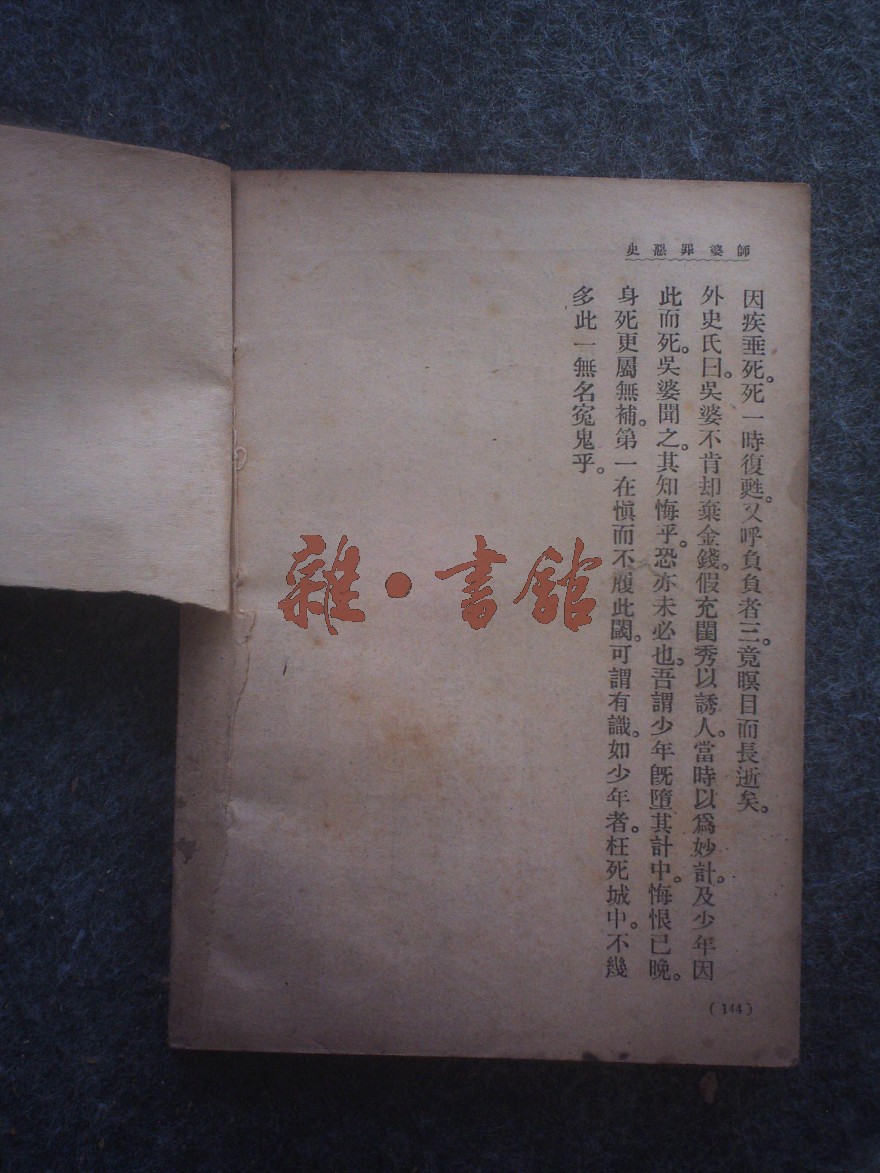 師婆罪惡史
因疾垂死。死一時復甦。又呼負負者三。竟暝目而長逝矣。
外史氏曰。吳婆不肯却棄金錢。假充閨秀以誘人。當時以爲妙計。及少年因
此而死。吳婆聞之。其知悔乎。恐亦未必也。吾謂少年旣墮其計中。悔恨已晚。
身死更屬無補。第一在愼而不履此閾。可謂有識。如少年者。枉死城中。不幾
多此一無名冤鬼乎。
(144)
雜·書舘